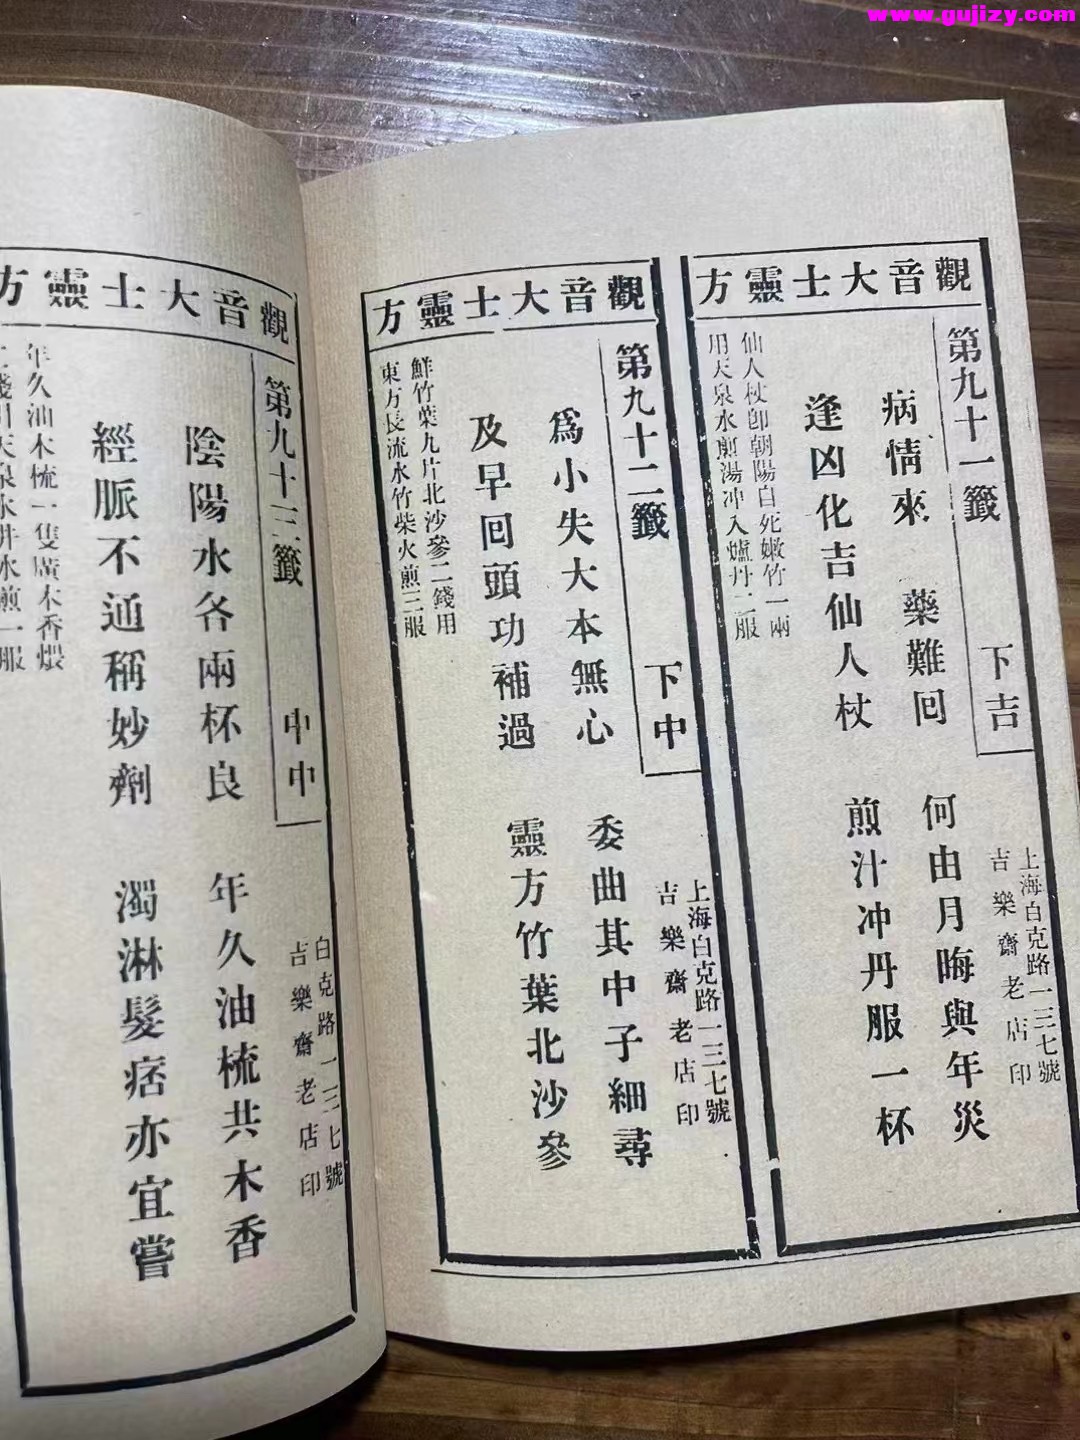 www.gujizy.com
觀音大士靈方
第九十一籤 下吉
上海白克路一三七號
吉樂齋老店印
病情來 藥難回 何由月晦與年災
逢凶化吉仙人杖 煎汁冲丹服一杯
仙人杖卽朝陽自死嫩竹一兩
用天泉水煎湯冲入爐丹二服
觀音大士靈方
第九十二籤 下中
上海白克路一三七號
吉樂齋老店印
爲小失大本無心 委曲其中子細尋
及早回頭功補過 靈方竹葉北沙參
鮮竹葉九片北沙參二錢用
東方長流水竹柴火煎三服
觀音大士靈方
第九十三籤 中中
白克路一三七號
吉樂齋老店印
陰陽水各兩杯良 年久油梳共木香
經脈不通稱妙劑 濁淋髮痞亦宜嘗
年久油木梳一隻廣木香煨
錢引天泉水井水煎一服